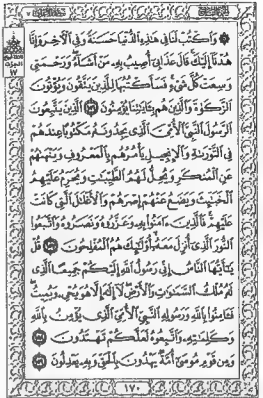 ۞ وَٱكۡتُبۡ لَنَا فِي هَٰذِهِ ٱلدُّنۡيَا حَسَنَةٗ وَفِي ٱلۡأٓخِرَةِ إِنَّا
هُدۡنَآ إِلَيۡكَۚ قَالَ عَذَابِيٓ أُصِيبُ بِهِۦ مَنۡ أَشَآءُۖ وَرَحۡمَتِي
وَسِعَتۡ كُلَّ شَيۡءٖۚ فَسَأَكۡتُبُهَا لِلَّذِينَ يَتَّقُونَ وَيُؤۡتُونَ
ٱلزَّكَوٰةَ وَٱلَّذِينَ هُم بِـَٔايَٰتِنَا يُؤۡمِنُونَ ١٥٦ ٱلَّذِينَ يَتَّبِعُونَ
ٱلرَّسُولَ ٱلنَّبِيَّ ٱلۡأُمِّيَّ ٱلَّذِي يَجِدُونَهُۥ مَكۡتُوبًا عِندَهُمۡ
فِي ٱلتَّوۡرَىٰةِ وَٱلۡإِنجِيلِ يَأۡمُرُهُم بِٱلۡمَعۡرُوفِ وَيَنۡهَىٰهُمۡ
عَنِ ٱلۡمُنكَرِ وَيُحِلُّ لَهُمُ ٱلطَّيِّبَٰتِ وَيُحَرِّمُ عَلَيۡهِمُ
ٱلۡخَبَٰٓئِثَ وَيَضَعُ عَنۡهُمۡ إِصۡرَهُمۡ وَٱلۡأَغۡلَٰلَ ٱلَّتِي كَانَتۡ
عَلَيۡهِمۡۚ فَٱلَّذِينَ ءَامَنُواْ بِهِۦ وَعَزَّرُوهُ وَنَصَرُوهُ وَٱتَّبَعُواْ
ٱلنُّورَ ٱلَّذِيٓ أُنزِلَ مَعَهُۥٓ أُوْلَٰٓئِكَ هُمُ ٱلۡمُفۡلِحُونَ ١٥٧ قُلۡ
يَٰٓأَيُّهَا ٱلنَّاسُ إِنِّي رَسُولُ ٱللَّهِ إِلَيۡكُمۡ جَمِيعًا ٱلَّذِي
لَهُۥ مُلۡكُ ٱلسَّمَٰوَٰتِ وَٱلۡأَرۡضِۖ لَآ إِلَٰهَ إِلَّا هُوَ يُحۡيِۦ وَيُمِيتُۖ
فَـَٔامِنُواْ بِٱللَّهِ وَرَسُولِهِ ٱلنَّبِيِّ ٱلۡأُمِّيِّ ٱلَّذِي يُؤۡمِنُ بِٱللَّهِ
وَكَلِمَٰتِهِۦ وَٱتَّبِعُوهُ لَعَلَّكُمۡ تَهۡتَدُونَ ١٥٨
وَمِن قَوۡمِ مُوسَىٰٓ أُمَّةٞ يَهۡدُونَ بِٱلۡحَقِّ وَبِهِۦ يَعۡدِلُونَ ١٥٩
١٧٠